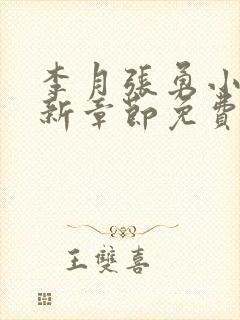 李月張勇小
新章節免費
王雙喜